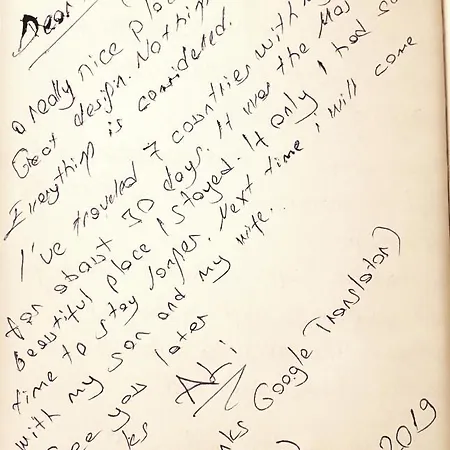 Dear
a really nice place
Great design. Nothing
Everything is considered.
I've traveled 7 countries with
for about 30 days. It was the Mos
beautiful place I stayed. If only I had
time to stay longer. Next time i will come
with my son and my wife..
see you later
Ali
Google Translator)
2019